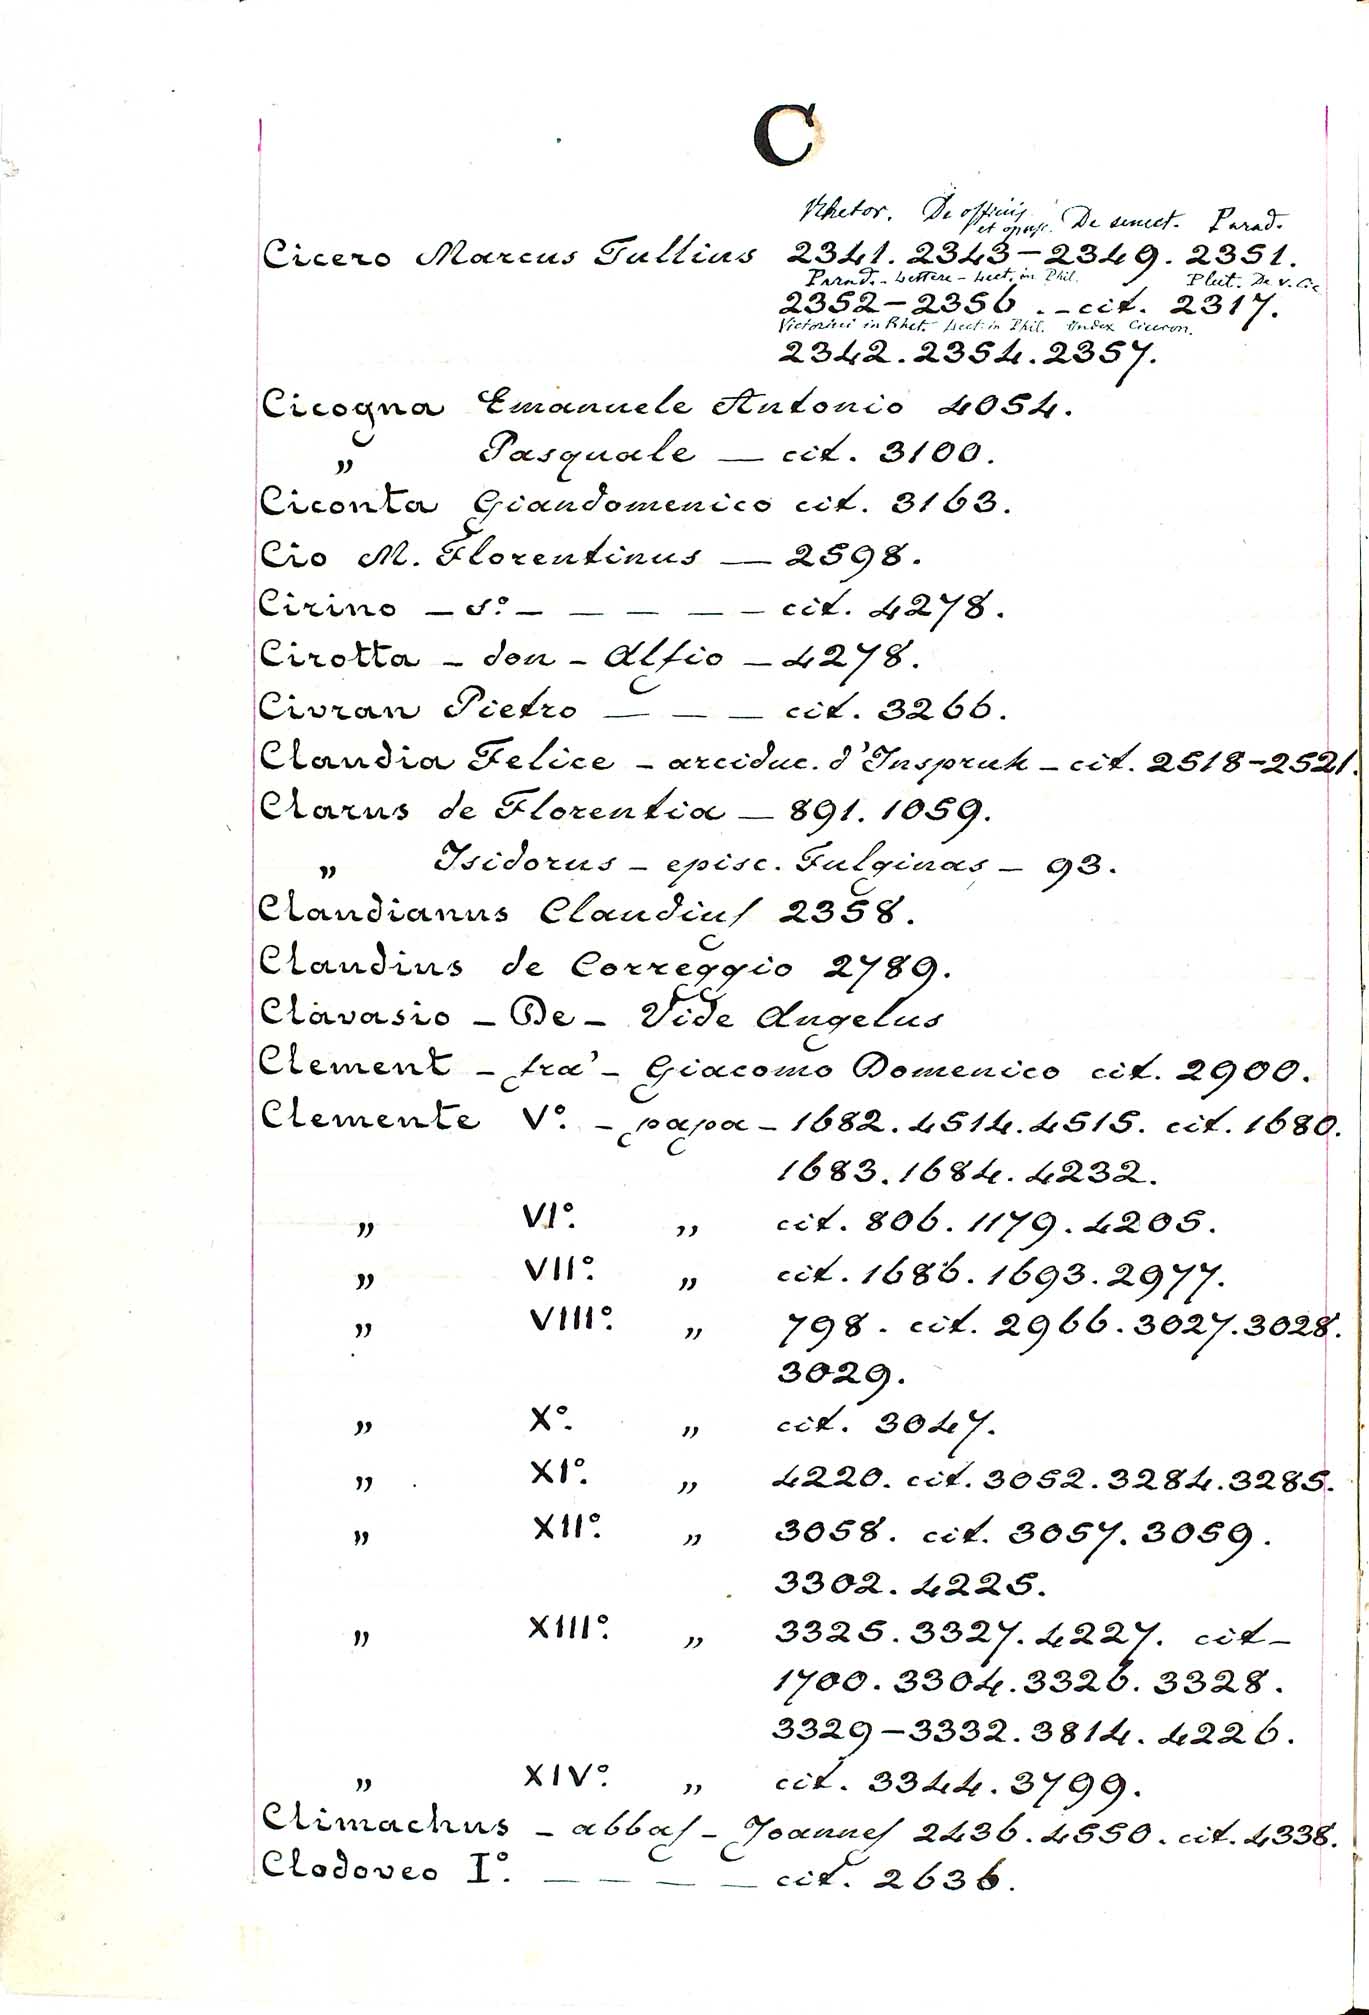 C
Rhetor. De officiis et opusc. De senect. Parad.
Cicero Marcus Tullius 2341. 2343-2349. 2351.
Parad. - Lettere - Lect. in Phil. Plut. De v. Cic
2352-2356. - cit. 2317.
Victorini in Rhet. Lect. in Phil. Index Ciceron.
2342. 2354. 2357.
Cicogna Emanuele Antonio 4054.
„ Pasquale — cit. 3100.
Ciconta Giandomenico cit. 3163.
Cio M. Florentinus — 2598.
Cirino - S.º - — — — - cit. 4278.
Cirotta - don - Alfio - 4278.
Civran Pietro — — — cit. 3266.
Claudia Felice - arciduc. d'Inspruk - cit. 2518-2521.
Clarus de Florentia — 891. 1059.
„ Isidorus - episc. Fulginas - 93.
Claudianus Claudius 2358.
Claudius de Correggio 2789.
Clavasio - De - Vide Angelus
Clement - fra' - Giacomo Domenico cit. 2900.
Clemente Vº. - papa - 1682. 4514. 4515. cit. 1680.
1683. 1684. 4232.
„ VIº. „ cit. 806. 1179. 4205.
„ VIIº. „ cit. 1686. 1693. 2977.
„ VIIIº. „ 798. cit. 2966. 3027. 3028.
3029.
„ Xº. „ cit. 3047.
„ XIº. „ 4220. cit. 3052. 3284. 3285.
„ XIIº. „ 3058. cit. 3057. 3059.
3302. 4225.
„ XIIIº. „ 3325. 3327. 4227. cit-
1700. 3304. 3326. 3328.
3329-3332. 3814. 4226.
„ XIVº. „ cit. 3344. 3799.
Climachus - abbas - Joannes 2436. 4550. cit. 4338.
Clodoveo Iº. — — — — cit. 2636.